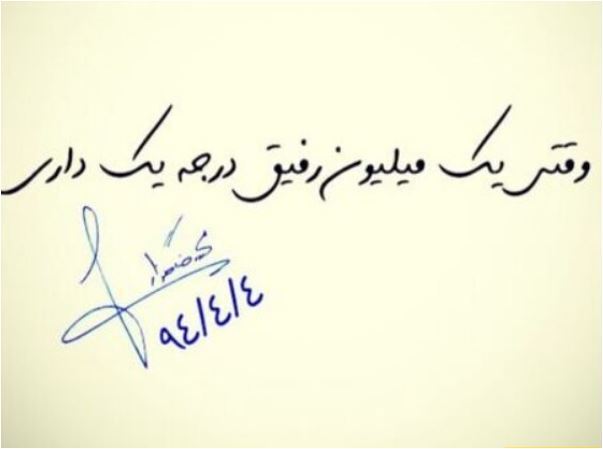 وقتی یک میلیون رفیق درجه یک داری
٩٤/٤/٤